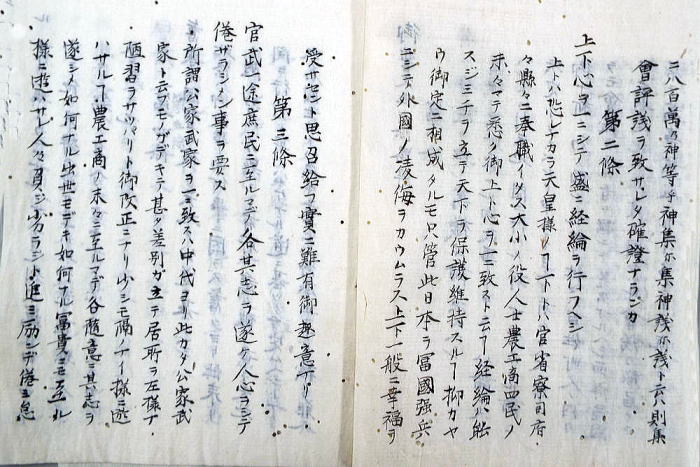 ニ八百萬ノ神等ヲ神集ニ集神議ニ議ト云ハ則集
會評議ヲ致サレタ確證ナランカ
第二條
上下心ヲ一ニシテ盛ニ經綸ヲ行フヘシ
上トハ恐レナカラ天皇様ノ下トハ官省寮司府
々縣々ニ奉職イタス大小ノ役人士農工商四民ノ
末々マテ悉ク御上ト心ヲ一致スト云フ經綸ハ
スジミチヲ立テ天下ヲ保護維持スル抑カヤ
ウ御定ニ相成タルモ只管此日本ヲ冨國強兵
ニシテ外國ノ凌侮ヲカウムラス上下一般ニ幸福ヲ
受サセント思召給フ實ニ難有御趣意ナリ
第三條
官武一途庶民ニ至ルマデ各其志ヲ遂ケ人心ヲシテ
倦ザラシメン事ヲ要ス
所謂公家武家ヲ一ニ致スハ中代ヨリ此カタ公家武
家ト云フモノガデキテ甚タ差別ガ立テ居所ヲ左様ナ
陋習ヲサッパリト御改正ニナリ少シモ隔ノナイ様ニ遊
ハサル農工商ノ末々ニ至ルマデ各隨意ニ其志ヲ
遂シメ如何ナル出世モデキ如何ナル冨貴ニモ至ル
様ニ遊ハサレ人々負シ劣ラシト進ミ励ンデ倦ミ怠